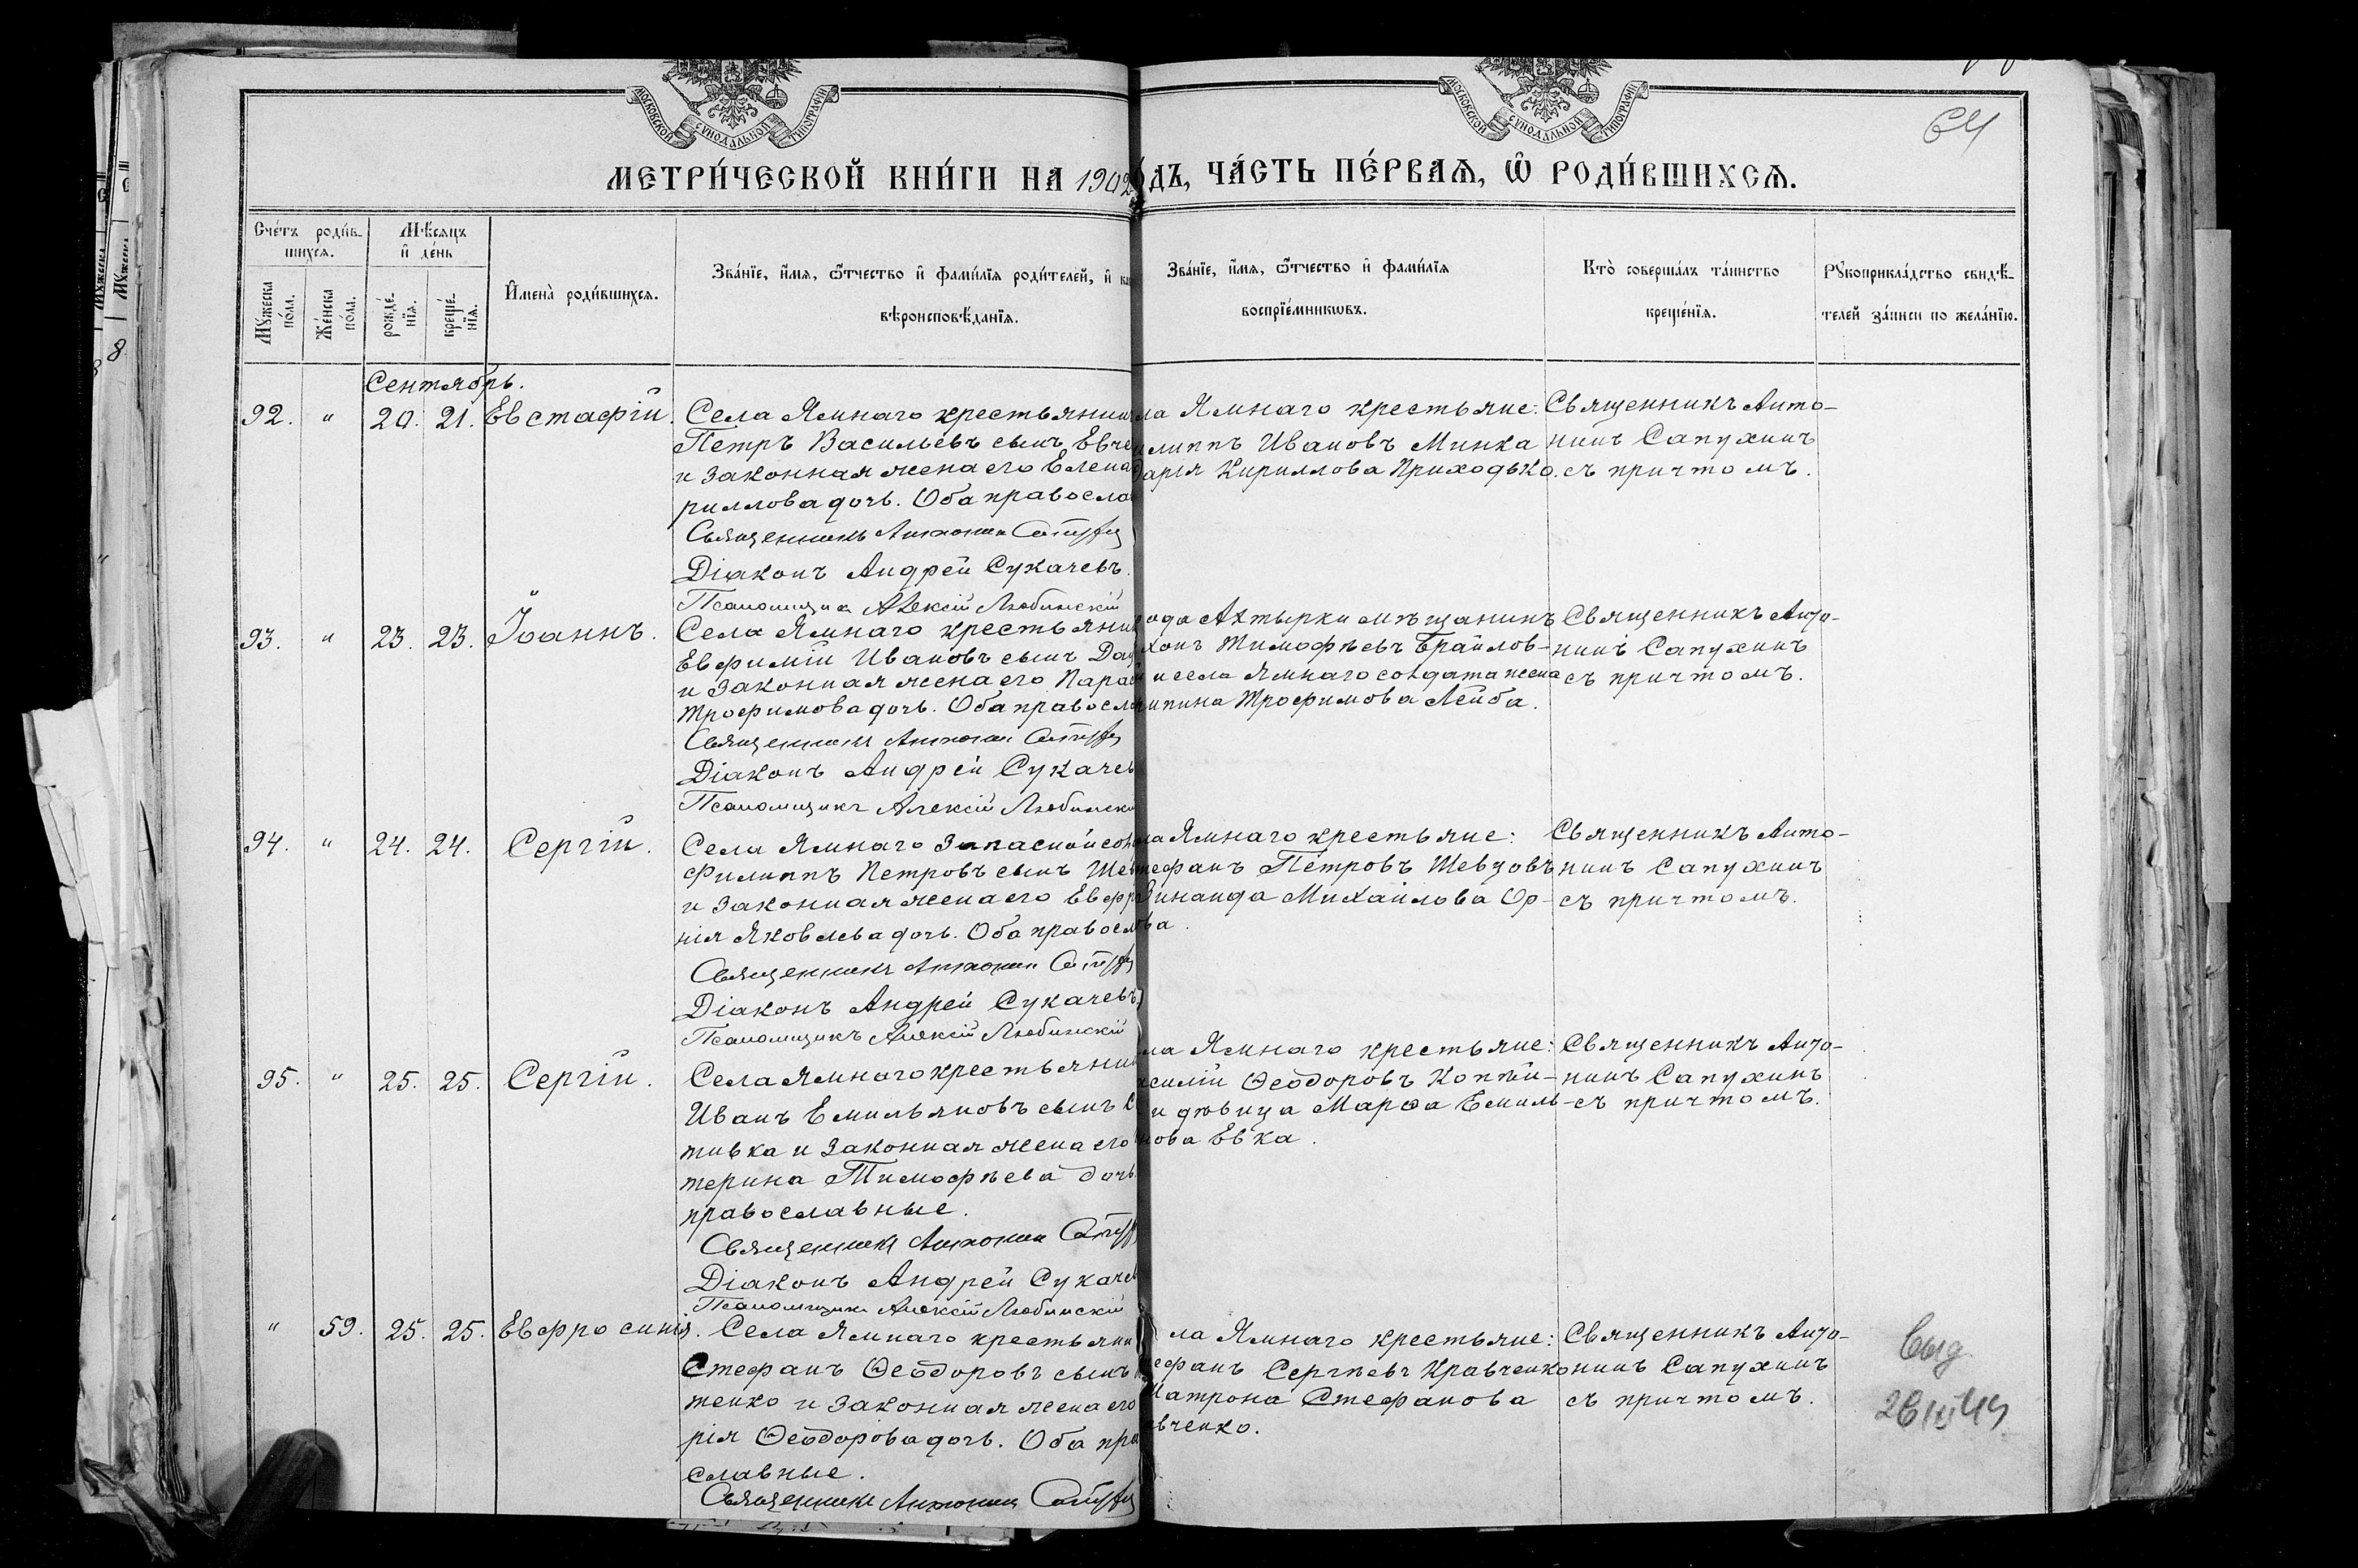 МОСКОВСКОЙ СѴНОДАЛЬНОЙ ТИПОГРАФІИ
МОСКОВСКОЙ СѴНОДАЛЬНОЙ ТИПОГРАФІИ
64
МЕТРИ́ЧЕСКОЙ КНИ́ГИ НА 1902 ДЪ, ЧА́СТЬ ПЕ́РВАѦ, Ѡ҆ РОДИ́ВШИХСѦ.
Сче́тъ роди́в-
шихсѧ.
Мѣ́сѧцъ
и҆ де́нь
Мꙋ́жеска по́ла.
Же́нска по́ла.
рожде́-нїѧ.
креще́-нїѧ.
И҆мена̀ роди́вшихсѧ.
Зва́нїе, и҆́мѧ, ѻ҆́тчество и҆ фами́лїѧ роди́телей, и҆
вѣроисповѣ́данїѧ.
Зва́нїе, и҆́мѧ, ѻ҆́тчество и҆ фами́лїѧ
воспрїе́мникѡвъ.
Кто̀ соверша́лъ та́инство
креще́нїѧ.
Рꙋкоприкла́дство свидѣ́-
телей за́писи по жела́нїю.
Сентябрь.
92. " 20. 21. Евстафій.
Села Ямнаго крестьянин
Петръ Васильевъ сынъ Евче
и законная жена его Елена
риллова дочь. Оба правосла
Священникъ Антонин
Діаконъ Андрей Сукачевъ.
Псаломщикъ Алексій Любинскій
ла Ямнаго крестьяне:
липпъ Ивановъ Минка
дарія Кириллова Приходько.
Священникъ Анто-
нинъ Сапухинъ
съ причтомъ.
93. " 23. 23. Іоаннъ.
Села Ямнаго крестьянин
Евфимій Ивановъ сынъ Да
и законная жена его Пара
Трофимова дочь. Оба правосл
Священникъ Антонин
Діаконъ Андрей Сукачев
Псаломщикъ Алексій Любински
ода Ахтырки мѣщанинъ
хонъ Тимофѣевъ Браилов-
и села Ямнаго солдата жена
ипина Трофимова Лейба.
Священникъ Анто-
нинъ Сапухинъ
съ причтомъ.
94. " 24. 24. Сергій.
Села Ямнаго запасной сол
Филиппъ Петровъ сынъ Шев
и законная жена его Евфр
нія Яковлева дочь. Оба правосл
Священникъ Антонин
Діаконъ Андрей Сукачевъ.
Псаломщикъ Алексій Любинскій
ла Ямнаго крестьяне:
тефанъ Петровъ Шевцовъ
Зинаида Михайлова Ор-
ова.
Священникъ Анто-
нинъ Сапухинъ
съ причтомъ.
95. " 25. 25. Сергій.
Села Ямнаго крестьянин
Иванъ Емильяновъ сынъ
тивка и законная жена его
терина Тимофѣева дочь.
православные.
Священникъ Антонин
Діаконъ Андрей Сукачев
Псаломщикъ Алексій Любинскій
ла Ямнаго крестьяне:
силій Ѳеодоровъ Коптѣи-
и дѣвица Марѳа Емиль-
нова Евка.
Священникъ Анто-
нинъ Сапухинъ
съ причтомъ.
" 59. 25. 25. Евфросинія.
Села Ямнаго крестьянин
Стефанъ Ѳеодоровъ сынъ
тенко и законная жена его
рія Ѳеодорова дочь. Оба пра
славные.
Священникъ Антонин
ла Ямнаго крестьяне:
ефанъ Сергѣевъ Кравченко
Матрона Стефанова
авченко.
Священникъ Анто-
нинъ Сапухинъ
съ причтомъ.
Выд.